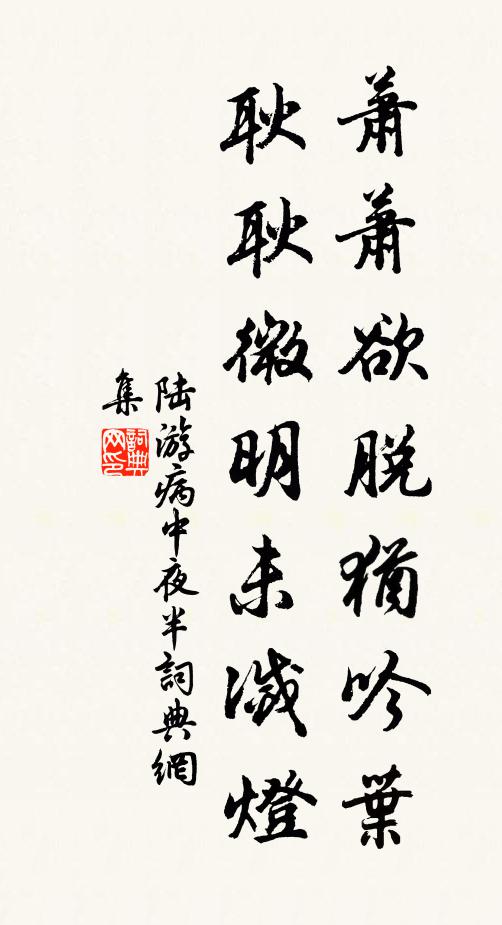 蕭蕭欲脫猶吟葉
耿耿微明未滅燈
陆游病中夜半詞典網
集
詞典网印